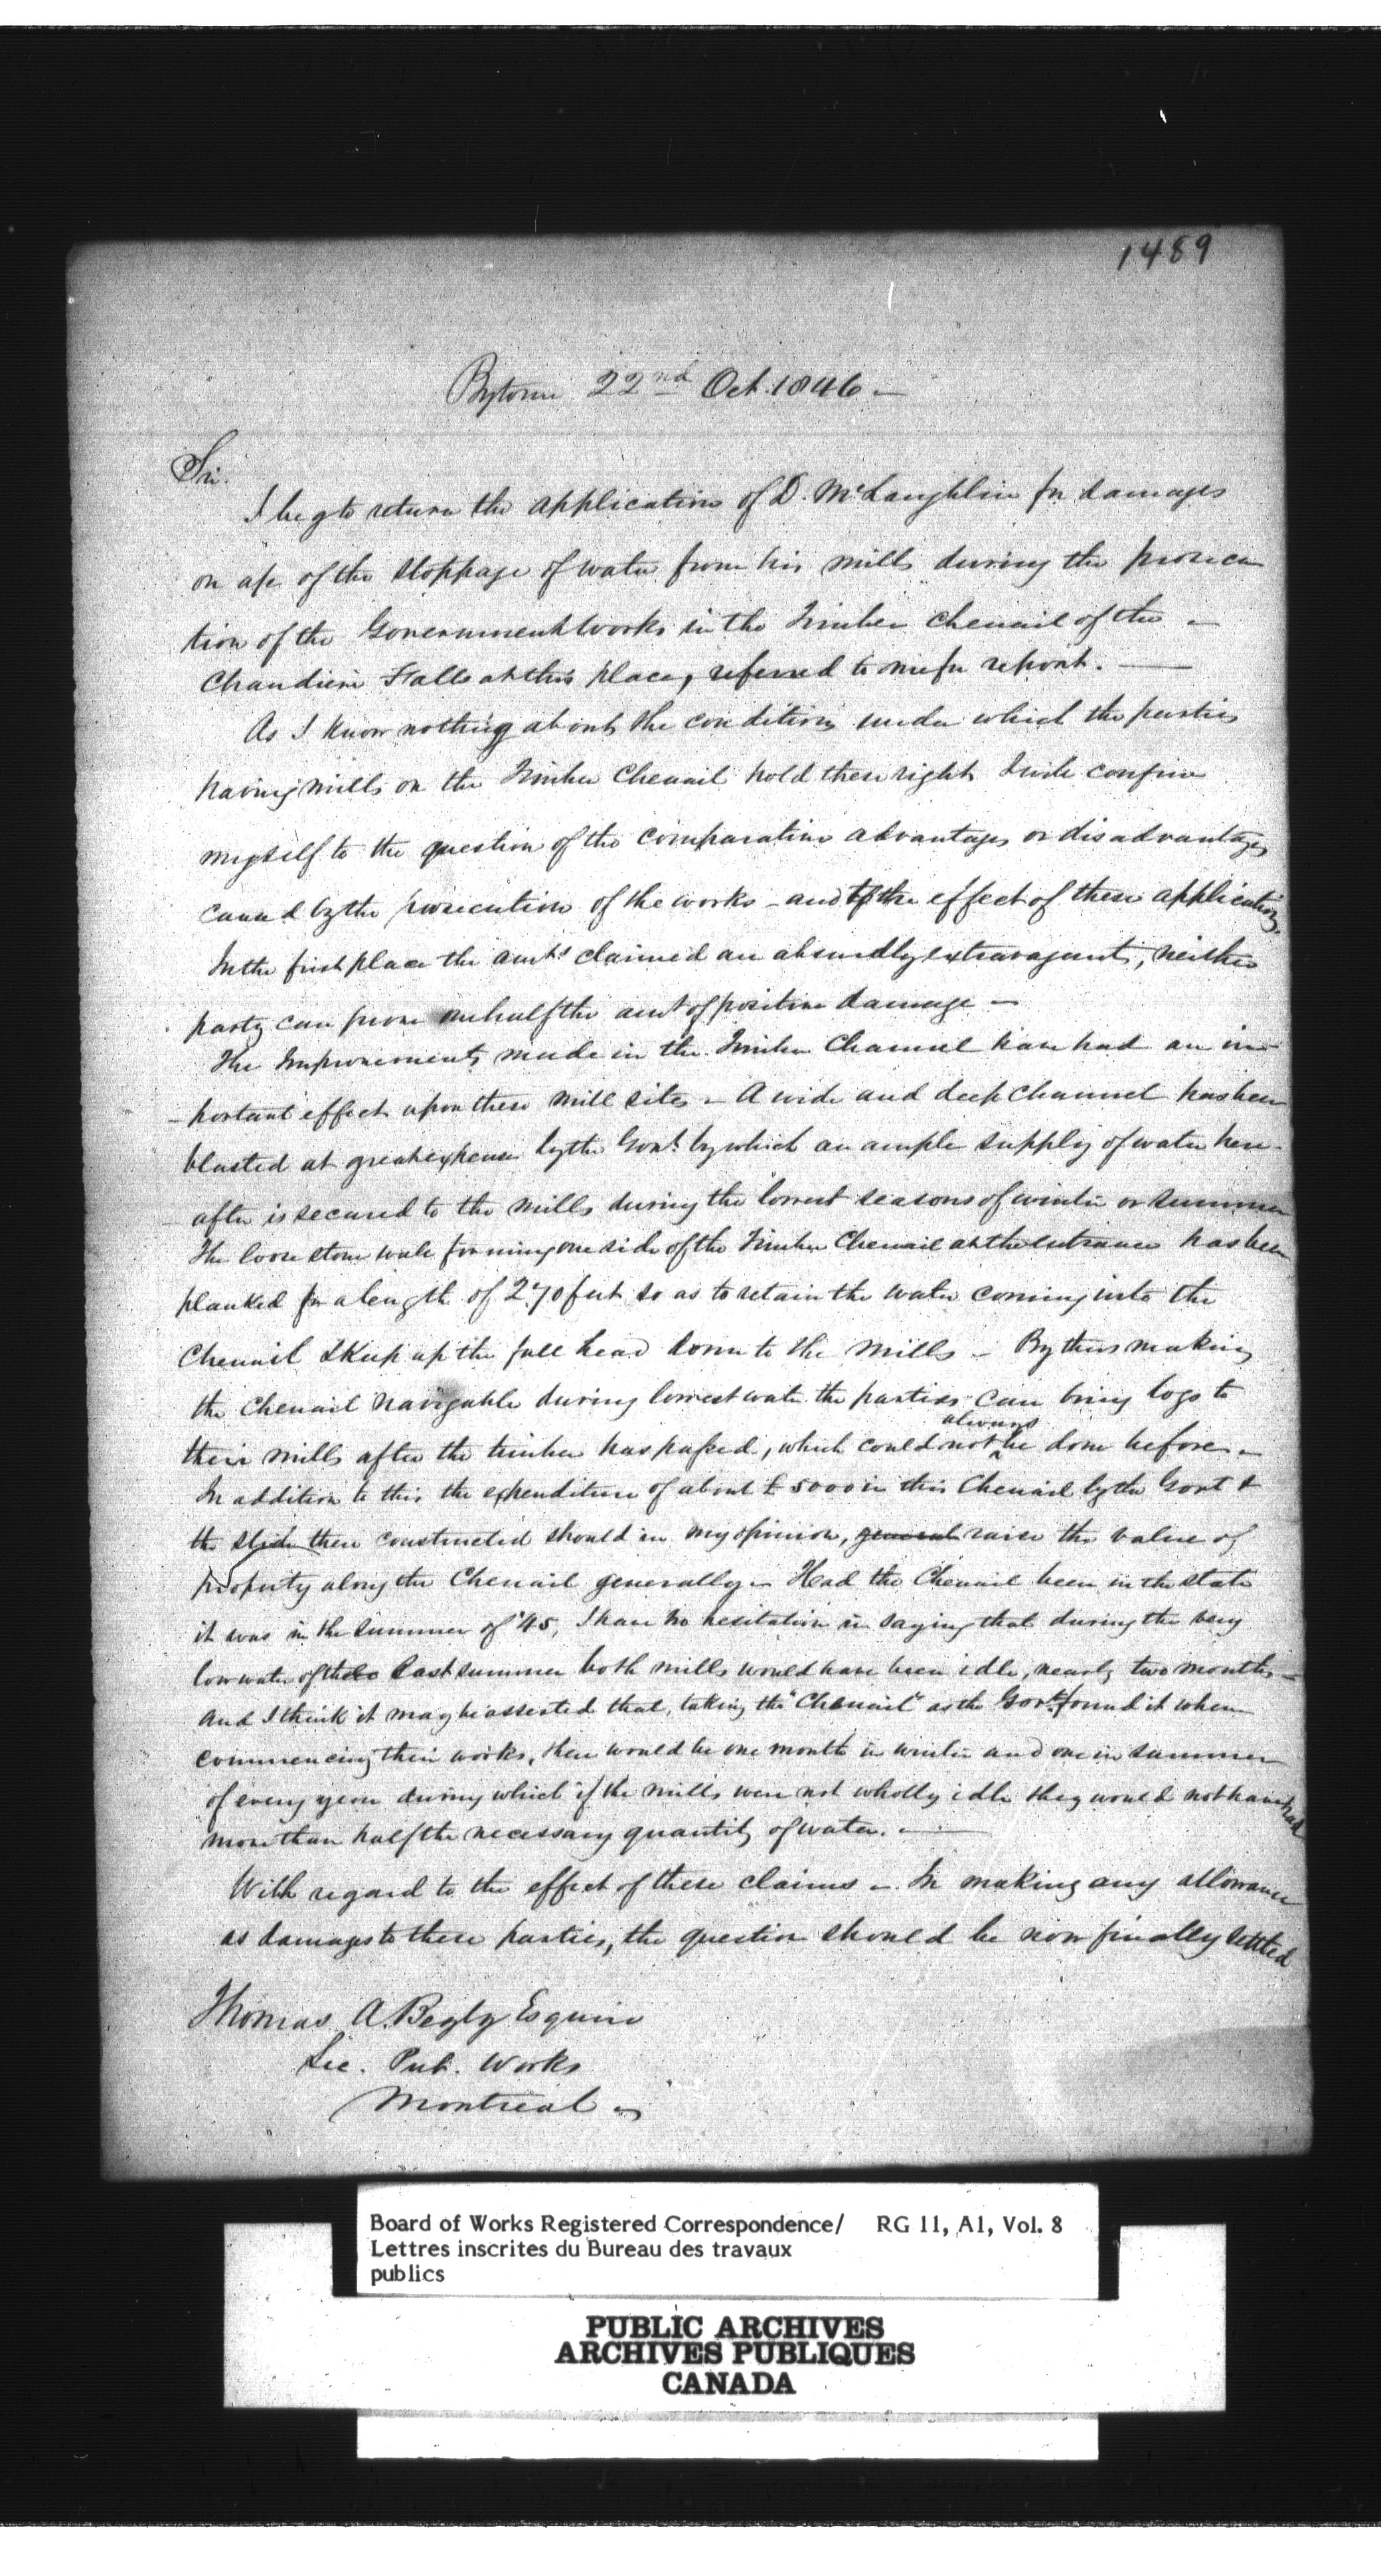 1489
Bytown 22nd Oct. 1846 —
Sir.
I beg to return the application of D. McLaughlin for damages
on a/c of the stoppage of water from his mills during the prosecu
tion of the Government works in the Timber Chenail of the —
Chaudiere Falls at this place, referred to me for report. —
As I know nothing about the conditions under which the parties
having mills on the Timber Chenail hold these rights I will confine
myself to the question of the comparative advantages or disadvantages
caused by the prosecution of the works — and to the effect of these applications.
In the first place the amts claimed are absurdly extravagant, neither
party can prove one half the amt of positive damage —
The Improvements made in the Timber Channel have had an im-
-portant effect upon these mill sites — A wide and deep channel has been
blasted at great expense by the Govt. by which an ample supply of water here-
after is secured to the mills during the lowest seasons of winter or summer
The loose stone wall forming one side of the Timber Chenail at the entrance has been
planked for a length of 270 feet so as to retain the water coming into the
Chenail & keep up the full head down to the mills — By thus making
the Chenail navigable during lowest water the parties can bring logs to
always
their mills after the timber has passed, which could not be done before —
In addition to this the expenditure of about £5000 in this Chenail by the Govt &
the slide there constructed should in my opinion, general raise the value of
property along the Chenail generally — Had the Chenail been in the state
it was in the summer of '45, I have no hesitation in saying that during the very
low water of the last summer both mills would have been idle, nearly two months —
And I think it may be asserted that, taking the "Chenail" as the Govt. found it when
commencing their works, there would be one month in winter and one in summer
of every year during which if the mills were not wholly idle they would not have had
more than half the necessary quantity of water. —
With regard to the effect of these claims — In making any allowance
as damages to these parties, the question should be now finally settled
Thomas A. Begly Esquire
Sec. Pub. Works
Montreal —
Board of Works Registered Correspondence/ RG 11, A1, Vol. 8
Lettres inscrites du Bureau des travaux
publics
PUBLIC ARCHIVES
ARCHIVES PUBLIQUES
CANADA